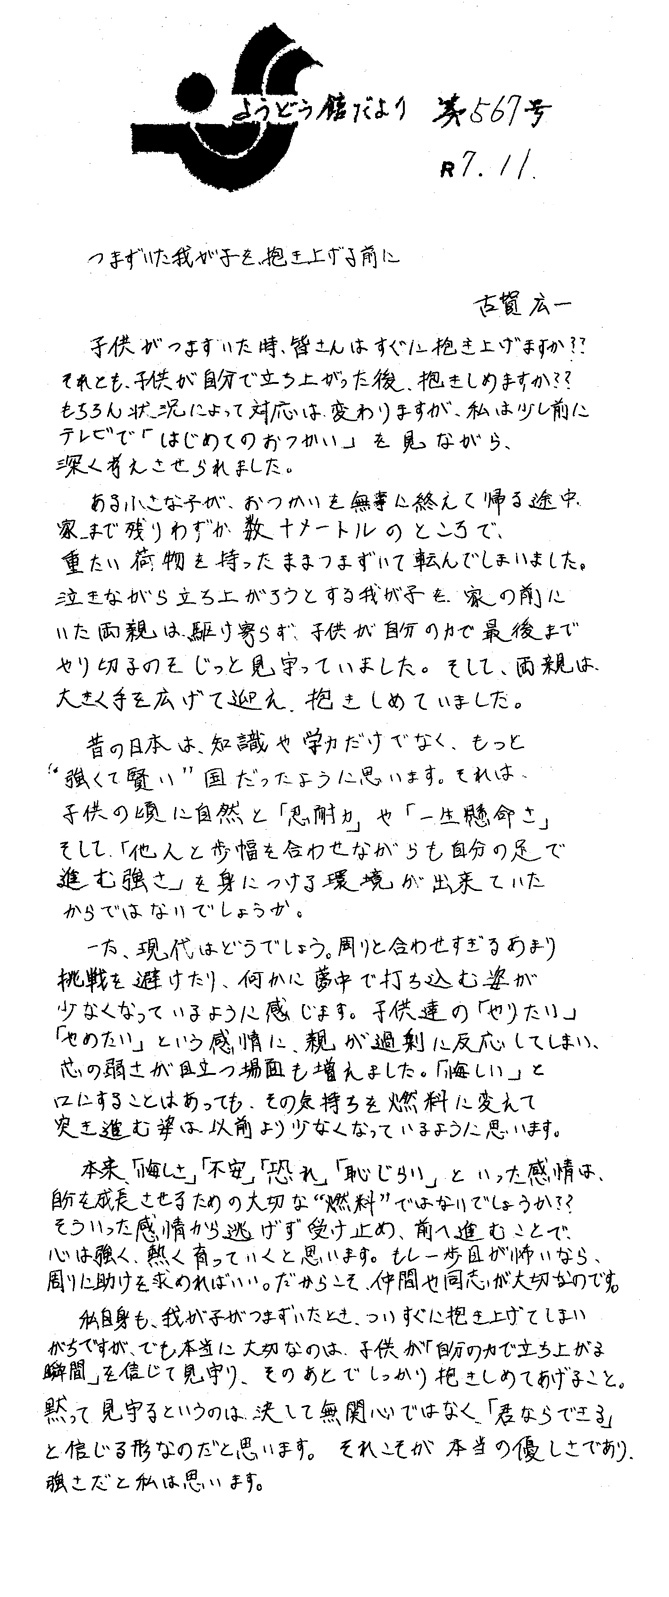 ようどう館だより 第567号
R7.11.
つまずいた我が子を、抱き上げる前に
古賀 広一
子供がつまずいた時、皆さんはすぐに抱き上げますか??
それとも、子供が自分で立ち上がった後、抱きしめますか??
もちろん状況によって対応は変わりますが、私は少し前に
テレビで「はじめてのおつかい」を見ながら、
深く考えさせられました。
ある小さな子が、おつかいを無事に終えて帰る途中、
家まで残りわずか数十メートルのところで、
重たい荷物を持ったままつまずいて転んでしまいました。
泣きながら立ち上がろうとする我が子を、家の前に
いた両親は駆け寄らず、子供が自分の力で最後まで
やり切るのをじっと見守っていました。そして、両親は、
大きく手を広げて迎え、抱きしめていました。
昔の日本は、知識や学力だけでなく、もっと
“強くて賢い”国だったように思います。それは、
子供の頃に自然と「忍耐力」や「一生懸命さ」
そして、「他人と歩幅を合わせながらも自分の足で
進む強さ」を身につける環境が出来ていた
からではないでしょうか。
一方、現代はどうでしょう。周りと合わせすぎるあまり
挑戦を避けたり、何かに夢中で打ち込む姿が
少なくなっているように感じます。子供達の「やりたい」
「やめたい」という感情に、親が過剰に反応してしまい、
芯の弱さが目立つ場面も増えました。「悔しい」と
口にすることはあっても、その気持ちを燃料に変えて
突き進む姿は以前より少なくなっているように思います。
本来、「悔しさ」「不安」「恐れ」「恥じらい」といった感情は、
自分を成長させるための大切な“燃料”ではないでしょうか??
そういった感情から逃げず受け止め、前へ進むことで、
心は強く、熱く育っていくと思います。もし一歩目が怖いなら、
周りに助けを求めればいい。だからこそ、仲間や同志が大切なのです。
私自身も、我が子がつまずいたとき、ついすぐに抱き上げてしまい
がちですが、でも本当に大切なのは、子供が「自分の力で立ち上がる
瞬間」を信じて見守り、そのあとでしっかり抱きしめてあげること。
黙って見守るというのは、決して無関心ではなく、「君ならできる」
と信じる形なのだと思います。それこそが本当の優しさであり、
強さだと私は思います。